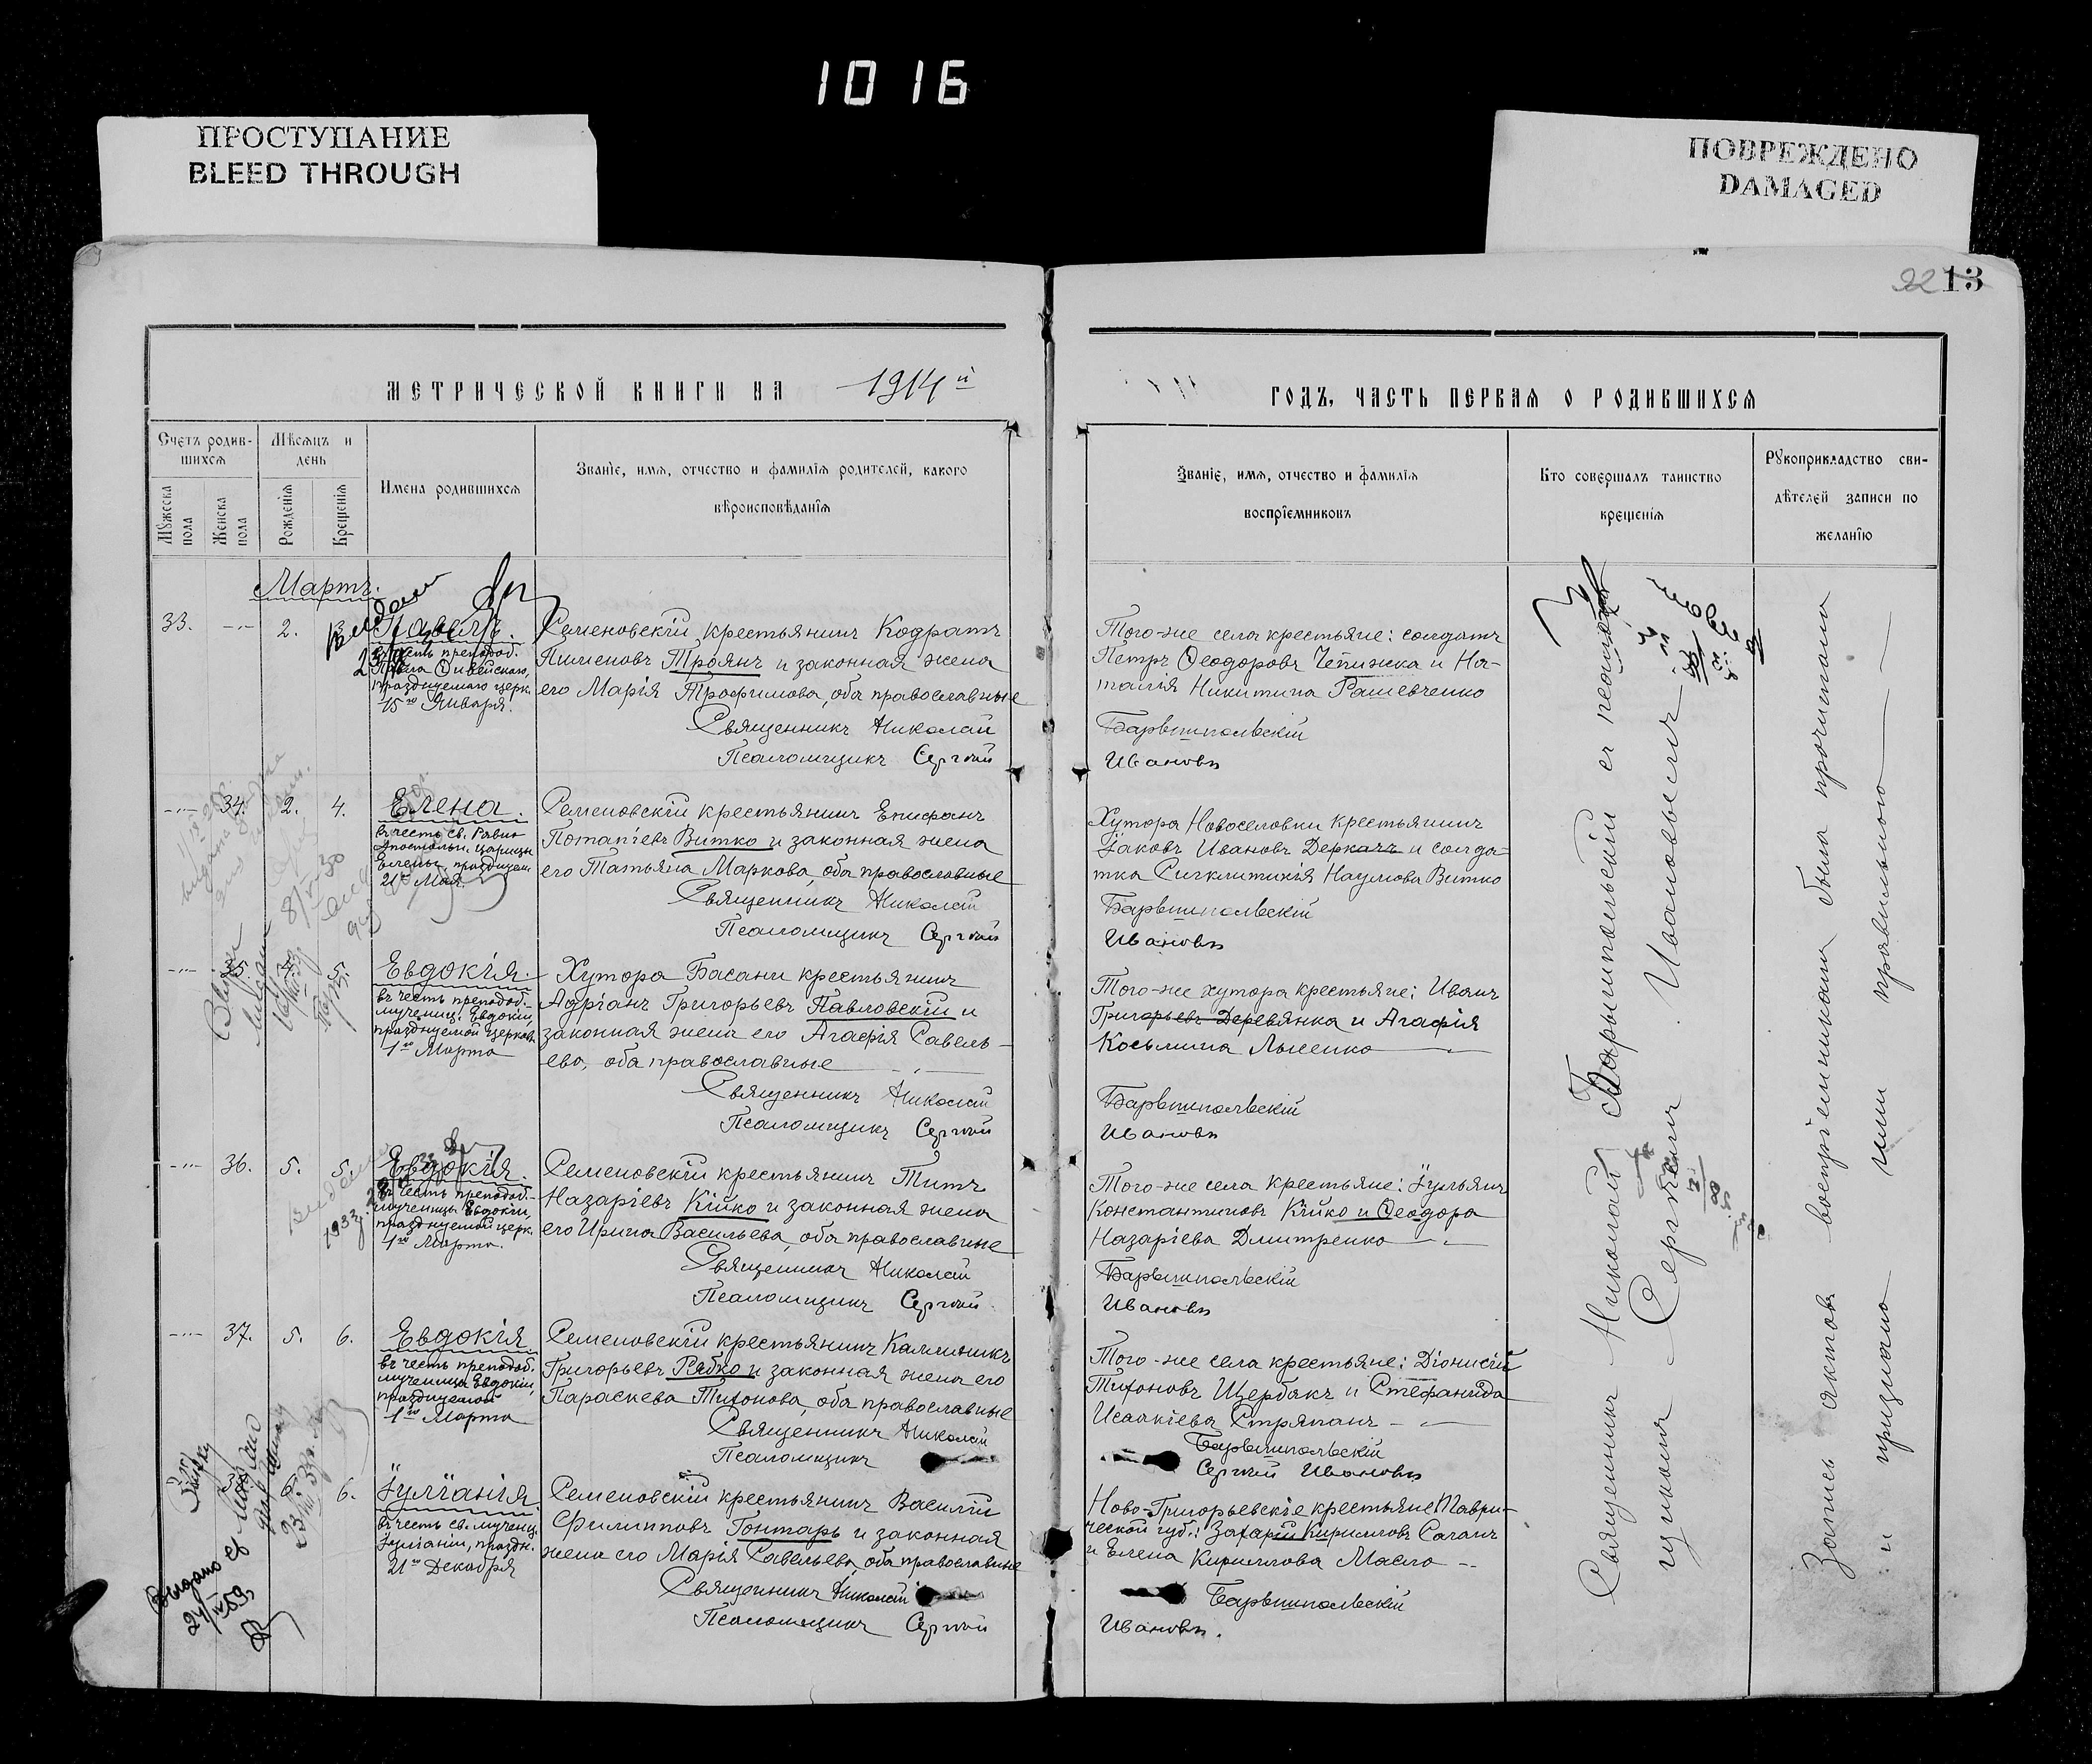 1016
ПРОСТУПАНИЕ
BLEED THROUGH
ПОВРЕЖДЕНО
DAMAGED
92 13
МЕТРИЧЕСКОЙ КНИГИ НА 1914й
ГОДЪ, ЧАСТЬ ПЕРВАЯ О РОДИВШИХСЯ
Счетъ родив-
шихся
Мѣсяцъ и
день
Мужеска
пола
Женска
пола
Рожденія
Крещенія
Имена родившихся
Званіе, имя, отчество и фамилія родителей, какого
вѣроисповѣданія
Званіе, имя, отчество и фамилія
воспріемниковъ
Кто совершалъ таинство
крещенія
Рукоприкладство сви-
дѣтелей записи по
желанію
Мартъ.
33. 2.
Павелъ.
въ честь преподоб.
Павла Ѳивейскаго,
празднуемаго церк.
15го Января.
Семеновскій крестьянинъ Кодратъ
Пименовъ Троянъ и законная жена
его Марія Трофимова, оба православные
Священникъ Николай
Псаломщикъ Сергій
Того-же села крестьяне: солдатъ
Петръ Ѳеодоровъ Чепижка и На-
талія Никитина Рашевченко
Барвинпольскій
Ивановъ
34. 2. 4.
Елена.
въ честь св. Равно
апостольн. царицы
Елены празднуем.
21го Мая.
Семеновскій крестьянинъ Епифанъ
Потапіевъ Витко и законная жена
его Татьяна Маркова, оба православные
Священникъ Николай
Псаломщикъ Сергій
Хутора Новоселовки крестьянинъ
Іаковъ Ивановъ Деркачъ и солда-
тка Сигклитикія Наумова Витко
Барвинпольскій
Ивановъ
35. 5.
Евдокія.
въ честь преподоб.
мучениц. Евдокіи
празднуемой Церковію
1го Марта
Хутора Басани крестьянинъ
Адріанъ Григорьевъ Павловскій и
законная жена его Агафія Савель-
ева, оба православные
Священникъ Николай
Псаломщикъ Сергій
Того-же хутора крестьяне: Иванъ
Григорьевъ Деревянка и Агафія
Косьмина Лысенко
Барвинпольскій
Ивановъ
36. 5. 5.
Евдокія.
въ честь преподоб.
мученицы Евдокіи,
празднуемой церк.
1го Марта.
Семеновскій крестьянинъ Титъ
Назаріевъ Кійко и законная жена
его Ирина Васильева, оба православные
Священникъ Николай
Псаломщикъ Сергій
Того-же села крестьяне: Іульянъ
Константиновъ Кійко и Ѳеодора
Назаріева Дмитренко
Барвинпольскій
Ивановъ
37. 5. 6.
Евдокія.
въ честь преподоб.
мученицы Евдокіи,
празднуемой
1го Марта
Семеновскій крестьянинъ Каллиникъ
Григорьевъ Рябко и законная жена его
Параскева Тихонова, оба православные
Священникъ Николай
Псаломщикъ
Того-же села крестьяне: Діонисій
Тихоновъ Щербакъ и Стефанида
Исаакіева Стряпанъ
Барвинпольскій
Сергій Ивановъ
6.
Іуліанія.
въ честь св. мучениц.
Іуліаніи, праздн.
21го Декабря
Семеновскій крестьянинъ Василій
Филипповъ Гонтарь и законная
жена его Марія Савельева, оба православные
Священникъ Николай
Псаломщикъ Сергій
Ново-Григорьевскіе крестьяне Таври-
ческой губ.: Захарій Кирилловъ Саганъ
и Елена Кириллова Масло
Барвинпольскій
Ивановъ.
Священникъ Николай Барвинпольскій съ псаломщ
щикомъ Сергіемъ Иоановымъ
Запись актовъ воспріемниками была прочитана
и признано ими правильною
Выдано